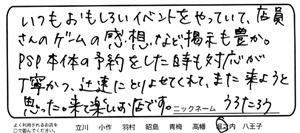 いつもおもしろいイベントをやっていて、店員
さんのゲームの感想など掲示も豊か。
PSP本体の予約をした時も対応が
丁寧かつ、迅速にとりよせてくれて、また来ようと
思った。来て楽しいお店です。
ニックネーム うろたろう
よく利用されるお店を
○で囲んでください。
立川 小作 羽村 昭島 青梅 高幡 堀之内 八王子